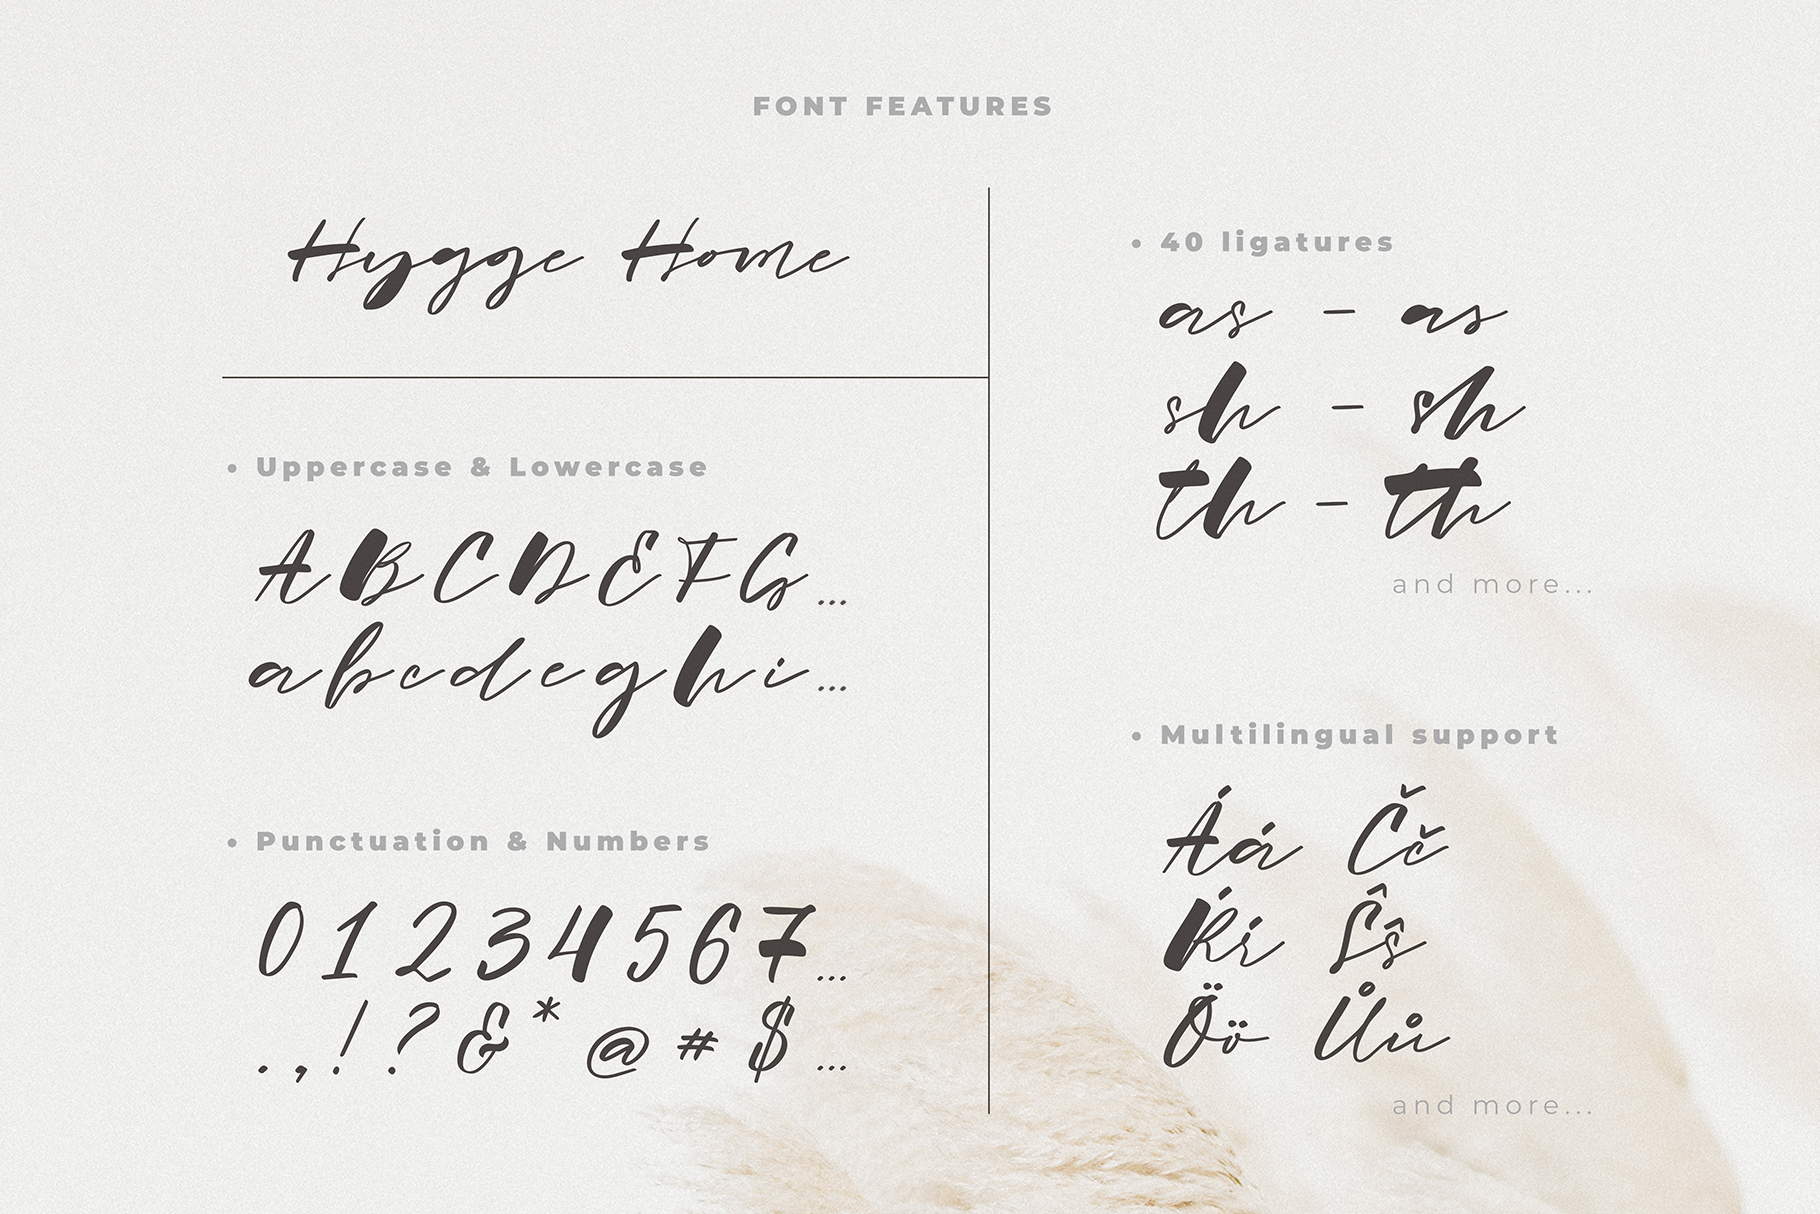 FONT FEATURES
Hygge Home
• Uppercase & Lowercase
A B C D E F G ...
a b c d e g h i ...
• Punctuation & Numbers
0 1 2 3 4 5 6 7 ...
. , ! ? & * @ # $ ...
• 40 ligatures
as - as
sh - sh
th - th
and more...
• Multilingual support
Áá Čč
Ŕŕ Ŝŝ
Öö Ůů
and more...